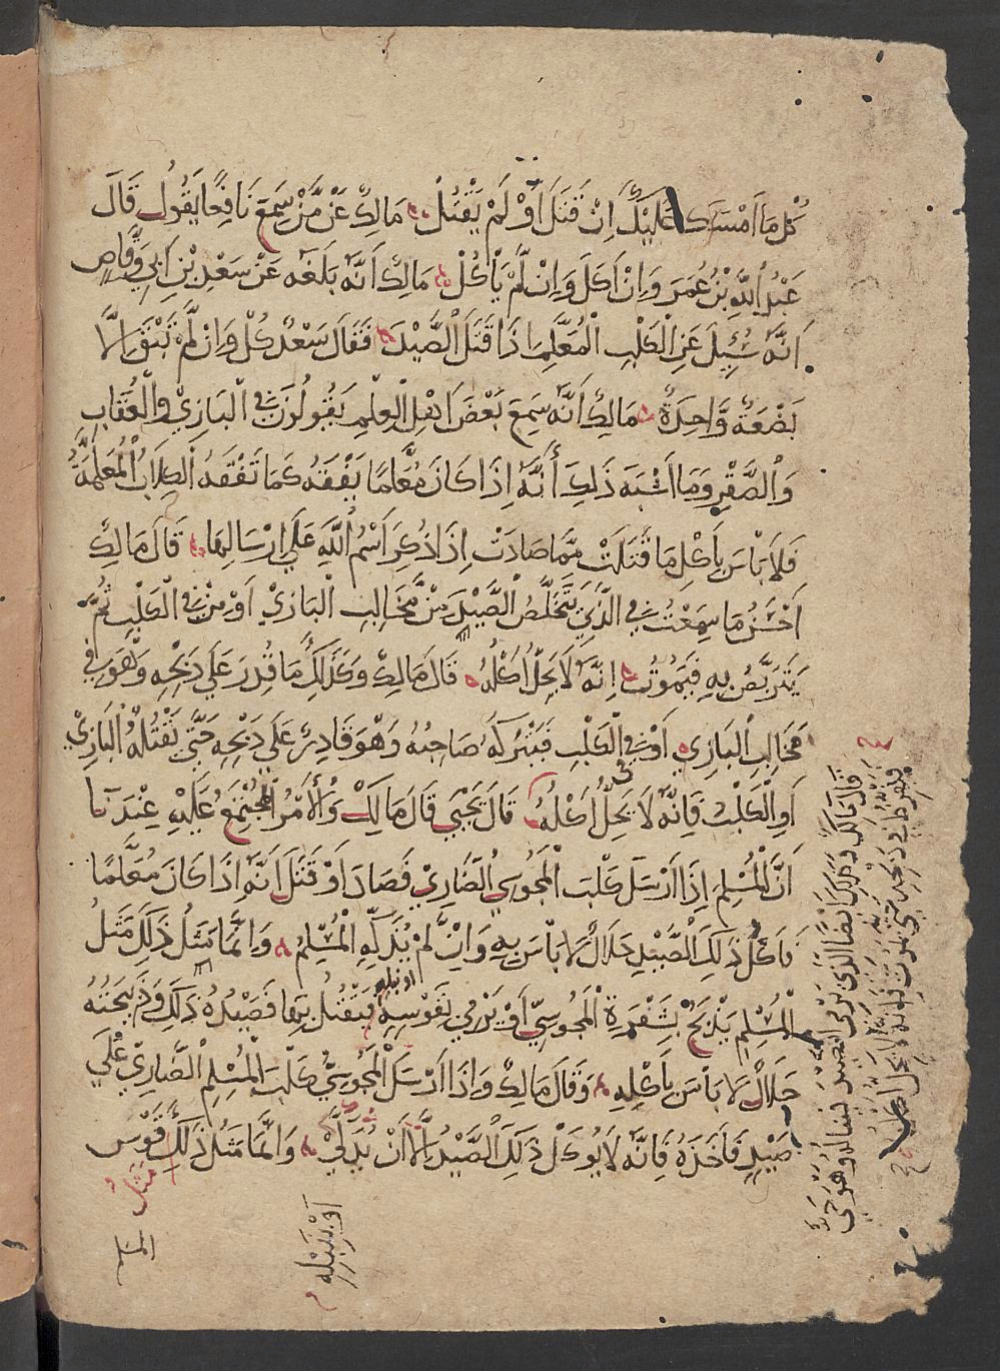 كُلْ مَا أَمْسَكَ عَلَيْكَ إِنْ قَتَلَ أَوْ لَمْ يَقْتُلْ مَالِكٌ عَنْ مَّنْ سَمِعَ نَافِعًا يَقُولُ قَالَ
عَبْدُ اللَّهِ بْنُ عُمَرَ وَإِنْ أَكَلَ وَإِنْ لَّمْ يَأْكُلْ مَالِكٌ أَنَّهُ بَلَغَهُ عَنْ سَعْدِ بْنِ أَبِي وَقَّاصٍ
أَنَّهُ سُئِلَ عَنِ الْكَلْبِ الْمُعَلَّمِ إِذَا قَتَلَ الصَّيْدَ فَقَالَ سَعْدٌ كُلْ وَإِنْ لَّمْ تَبْقَ إِلَّا
بَضْعَةٌ وَّاحِدَةٌ مَالِكٌ أَنَّهُ سَمِعَ بَعْضَ أَهْلِ الْعِلْمِ يَقُولُونَ فِي الْبَازِيِّ وَالْعُقَابِ
وَالصَّقْرِ وَمَا أَشْبَهَ ذَلِكَ أَنَّهُ إِذَا كَانَ مُعَلَّمًا يَفْقَهُ كَمَا تَفْقَهُ الْكِلَابُ الْمُعَلَّمَةُ
فَلَا بَأْسَ بِأَكْلِ مَا قَتَلَتْ مِمَّا صَادَتْ إِذَا ذُكِرَ اسْمُ اللَّهِ عَلَى إِرْسَالِهَا قَالَ مَالِكٌ
أَحْسَنُ مَا سَمِعْتُ فِي الَّذِي يَتَخَلَّصُ الصَّيْدَ مِنْ مَّخَالِبِ الْبَازِيِّ أَوْ مِنْ فِي الْكَلْبِ ثُمَّ
يَتَرَبَّصُ بِهِ فَيَمُوتُ إِنَّهُ لَا يَحِلُّ أَكْلُهُ قَالَ مَالِكٌ وَكَذَلِكَ مَا قُدِرَ عَلَى ذَبْحِهِ وَهُوَ فِي
مَخَالِبِ الْبَازِي أَوْ فِي الْكَلْبِ فَيَتْرُكُهُ صَاحِبُهُ وَهُوَ قَادِرٌ عَلَى ذَبْحِهِ حَتَّى يَقْتُلَهُ الْبَازِيُّ
أَوِ الْكَلْبُ فَإِنَّهُ لَا يَحِلُّ أَكْلُهُ قَالَ يَحْيَى قَالَ مَالِكٌ وَالْأَمْرُ الْمُجْتَمَعُ عَلَيْهِ عِنْدَنَا
أَنَّ الْمُسْلِمَ إِذَا أَرْسَلَ كَلْبَ الْمَجُوسِيِّ الضَّارِيَ فَصَادَ أَوْ قَتَلَ أَنَّهُ إِذَا كَانَ مُعَلَّمًا
فَأَكْلُ ذَلِكَ الصَّيْدِ حَلَالٌ لَا بَأْسَ بِهِ وَإِنْ لَّمْ يُذَكِّهِ الْمُسْلِمُ وَإِنَّمَا مَثَلُ ذَلِكَ مَثَلُ
الْمُسْلِمِ يَذْبَحُ بِشَفْرَةِ الْمَجُوسِيِّ أَوْ يَرْمِي بِقَوْسِهِ أو نبله فَيَقْتُلُ بِهَا فَصَيْدُهُ ذَلِكَ وَذَبِيحَتُهُ
حَلَالٌ لَا بَأْسَ بِأَكْلِهِ وَقَالَ مَالِكٌ وَإِذَا أَرْسَلَ الْمَجُوسِيُّ كَلْبَ الْمُسْلِمِ الضَّارِيَ عَلَى
صَيْدٍ فَأَخَذَهُ فَإِنَّهُ لَا يُوكَلُ ذَلِكَ الصَّيْدُ إِلَّا أَنْ يُذَكَّى وَإِنَّمَا مَثَلُ ذَلِكَ مَثَلُ قَوْسِ
المسلم
أَوْ نَبْلِهِ
قَالَ مَالِكٌ وَكَذَلِكَ أَيْضًا الَّذِي يَرْمِي الصَّيْدَ فَيَنَالُهُ وَهُوَ حَيٌّ
فَيُفَرِّطُ فِي ذَبْحِهِ حَتَّى يَمُوتَ فَإِنَّهُ لَا يَحِلُّ أَكْلُهُ